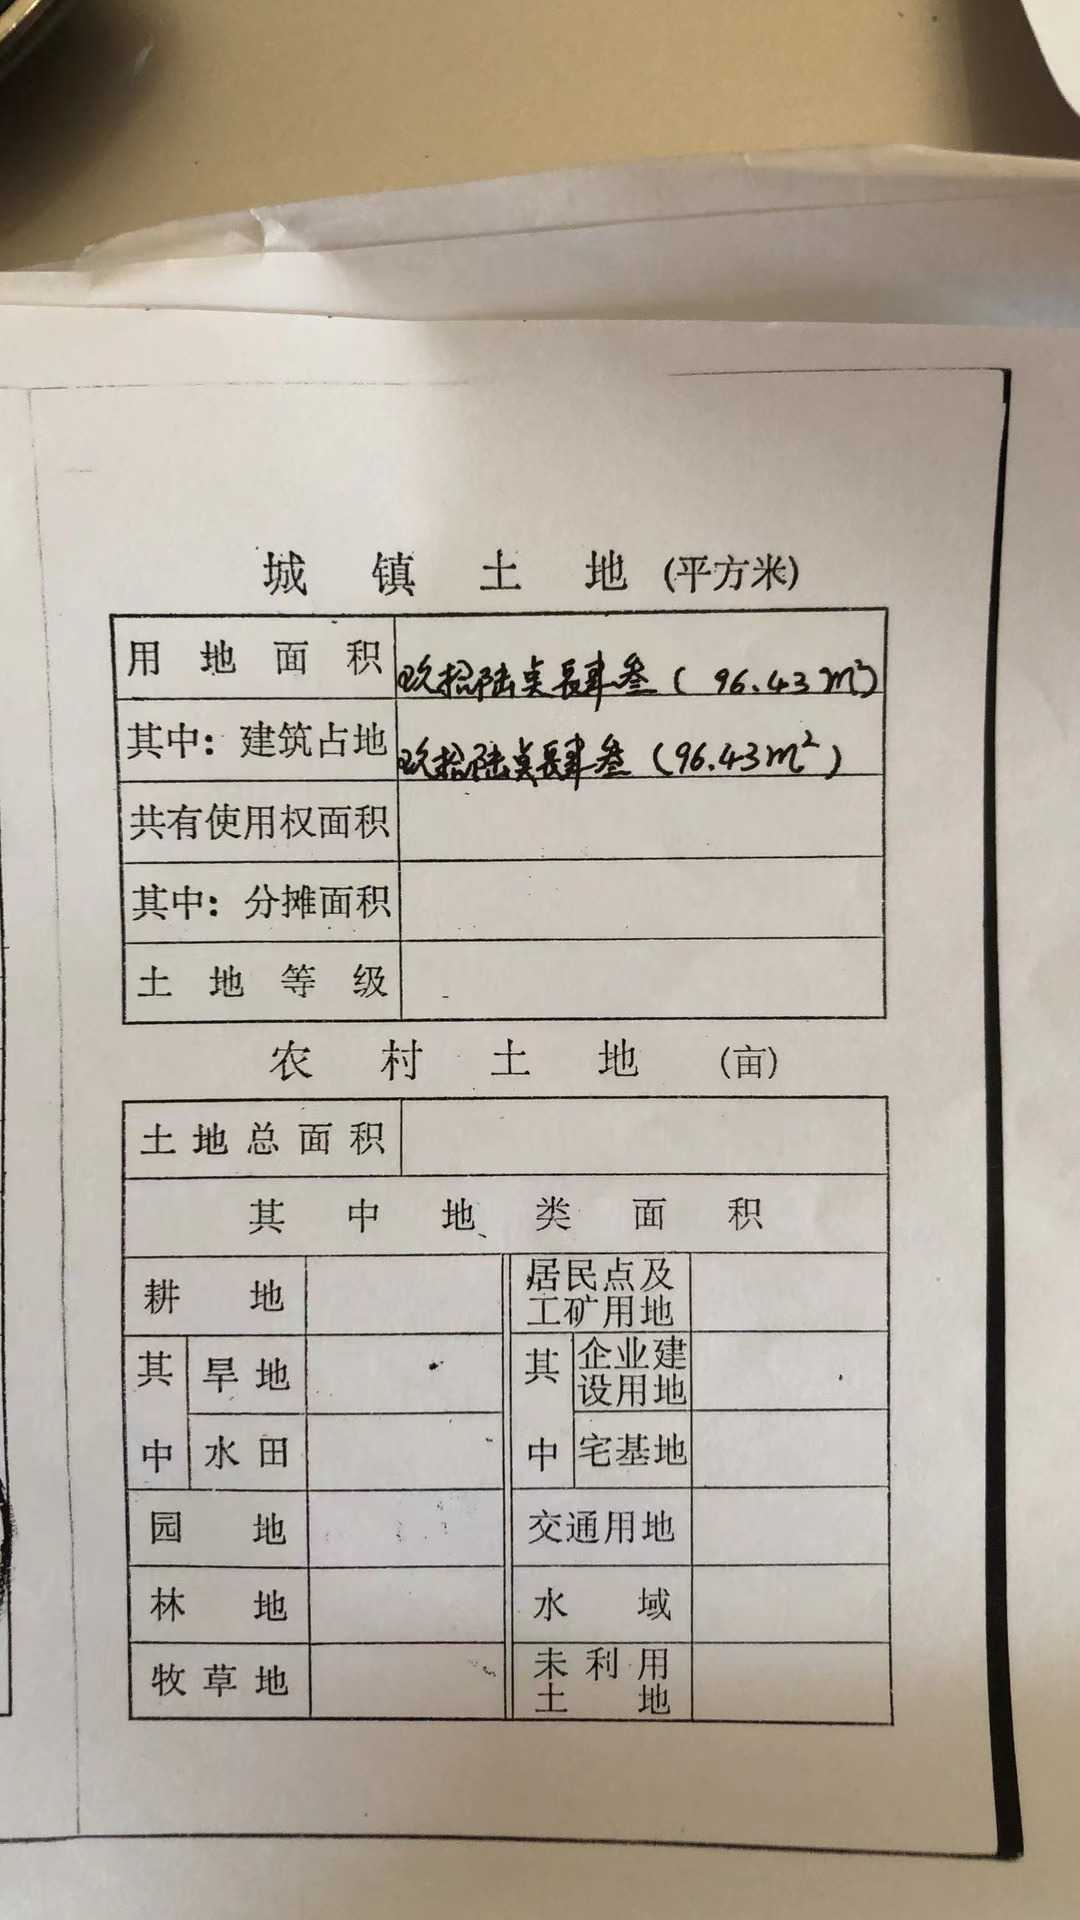 城镇土地(平方米)
用地面积 玖拾陆点肆叁(96.43m²)
其中:建筑占地 玖拾陆点肆叁(96.43m²)
共有使用权面积
其中:分摊面积
土地等级
农村土地(亩)
土地总面积
其中地类面积
耕地
居民点及
工矿用地
其中
旱地
水田
其中
企业建
设用地
宅基地
园地
交通用地
林地
水域
牧草地
未利用
土地